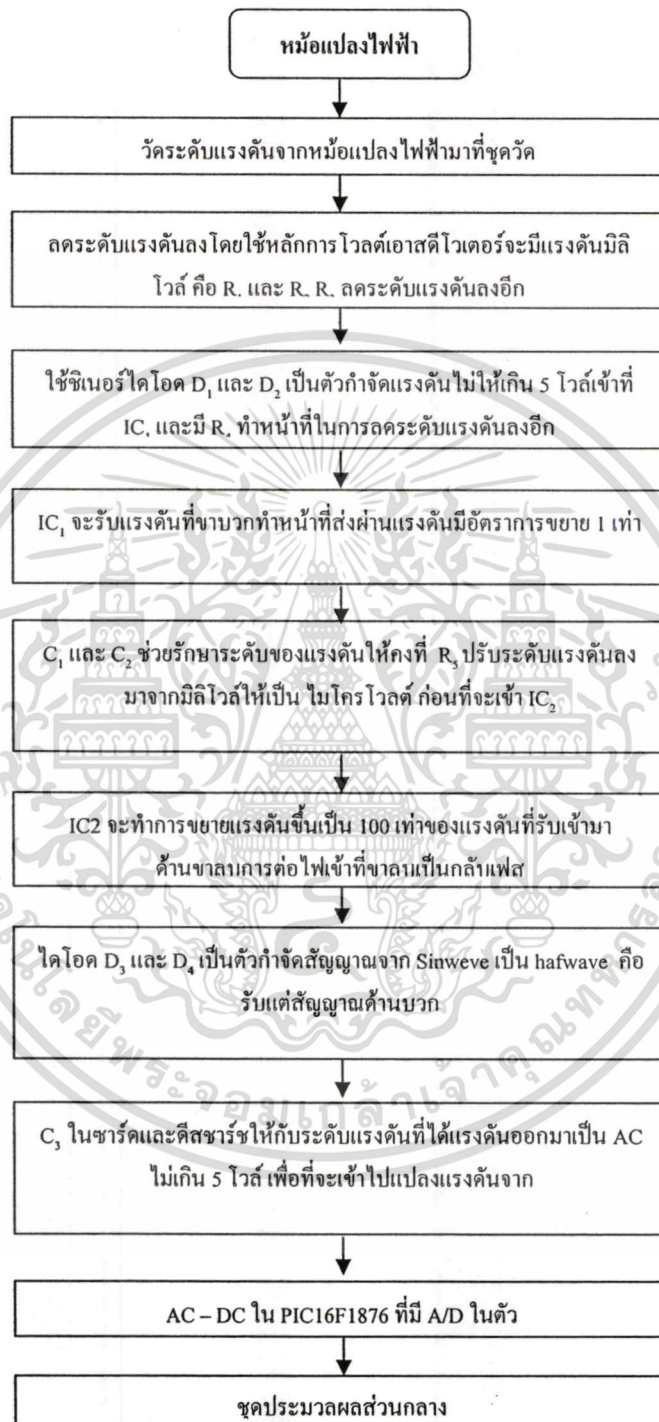 หม้อแปลงไฟฟ้า
วัดระดับแรงดันจากหม้อแปลงไฟฟ้ามาที่ชุดวัด
ลดระดับแรงดันลงโดยใช้หลักการโวลต์เอาสดีโวเตอร์จะมีแรงดันมิลิ
โวล์ คือ R. และ R. R. ลดระดับแรงดันลงอีก
ใช้ซิเนอร์ไดโอด D₁ และ D₂ เป็นตัวกำจัดแรงดันไม่ให้เกิน 5 โวล์เข้าที่
IC. และมี R. ทำหน้าที่ในการลดระดับแรงดันลงอีก
IC₁ จะรับแรงดันที่ขาบวกทำหน้าที่ส่งผ่านแรงดันมีอัตราการขยาย 1 เท่า
C₁ และ C₂ ช่วยรักษาระดับของแรงดันให้คงที่ R₅ ปรับระดับแรงดันลง
มาจากมิลิโวล์ให้เป็น ไมโครโวลต์ ก่อนที่จะเข้า IC₂
IC2 จะทำการขยายแรงดันขึ้นเป็น 100 เท่าของแรงดันที่รับเข้ามา
ด้านขาลบการต่อไฟเข้าที่ขาลบเป็นกลับเฟส
ไดโอด D₃ และ D₄ เป็นตัวกำจัดสัญญาณจาก Sinweve เป็น hafwave คือ
รับแต่สัญญาณด้านบวก
C₃ ในซาร์ดและดีสชาร์ชให้กับระดับแรงดันที่ได้แรงดันออกมาเป็น AC
ไม่เกิน 5 โวล์ เพื่อที่จะเข้าไปแปลงแรงดันจาก
AC – DC ใน PIC16F1876 ที่มี A/D ในตัว
ชุดประมวลผลส่วนกลาง